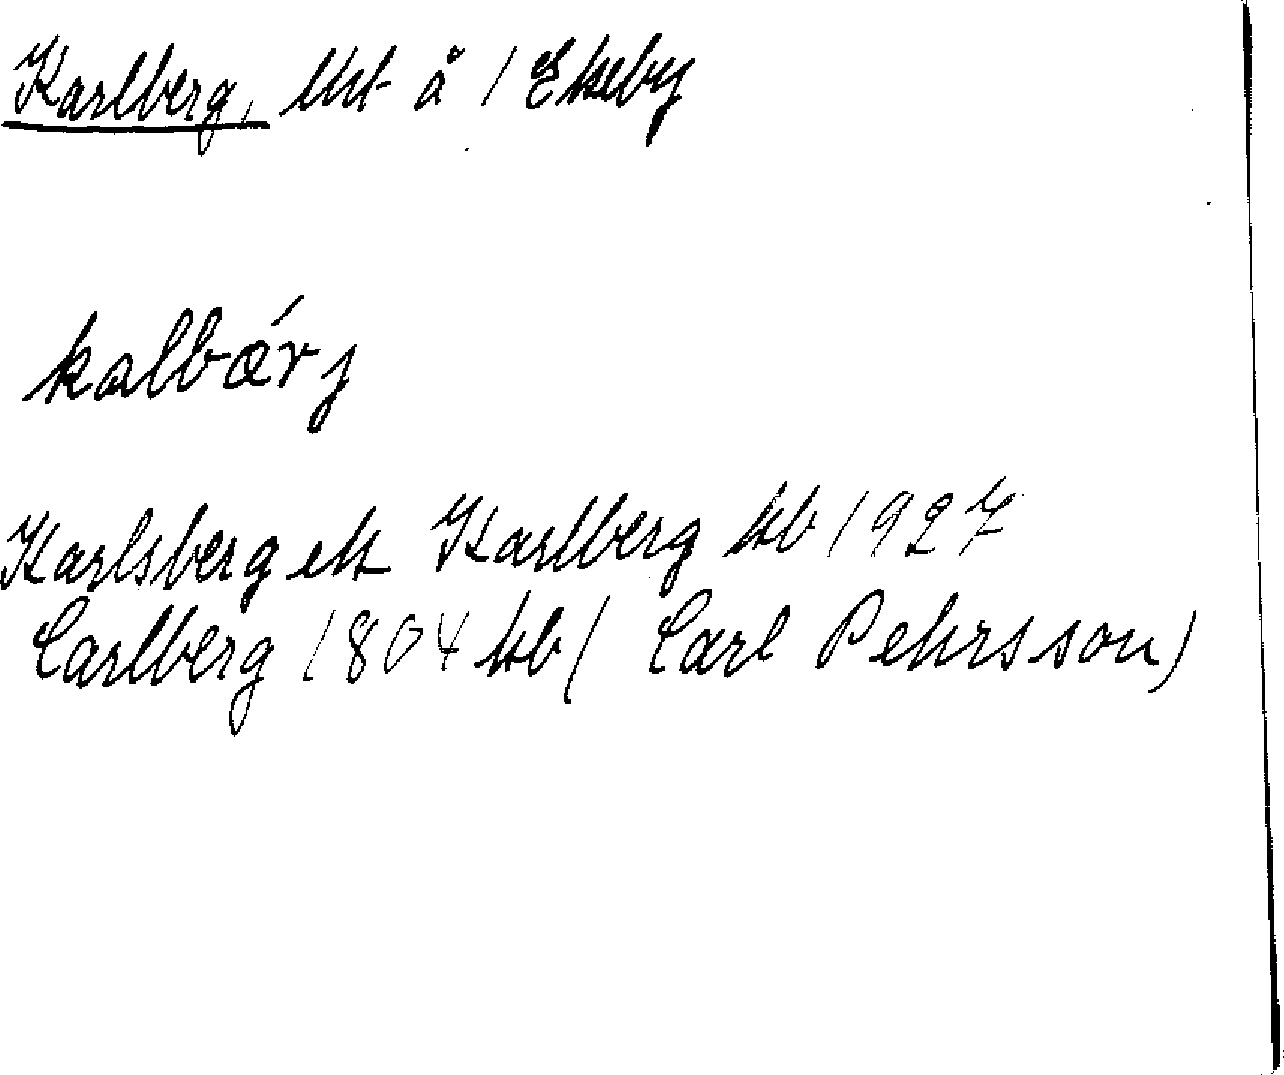 Karlberg, lht å 1 Ekeby
kalbǽrj
Karlsberg elt Karlberg hb 1927
Carlberg 1804 hb (Carl Pehrsson)